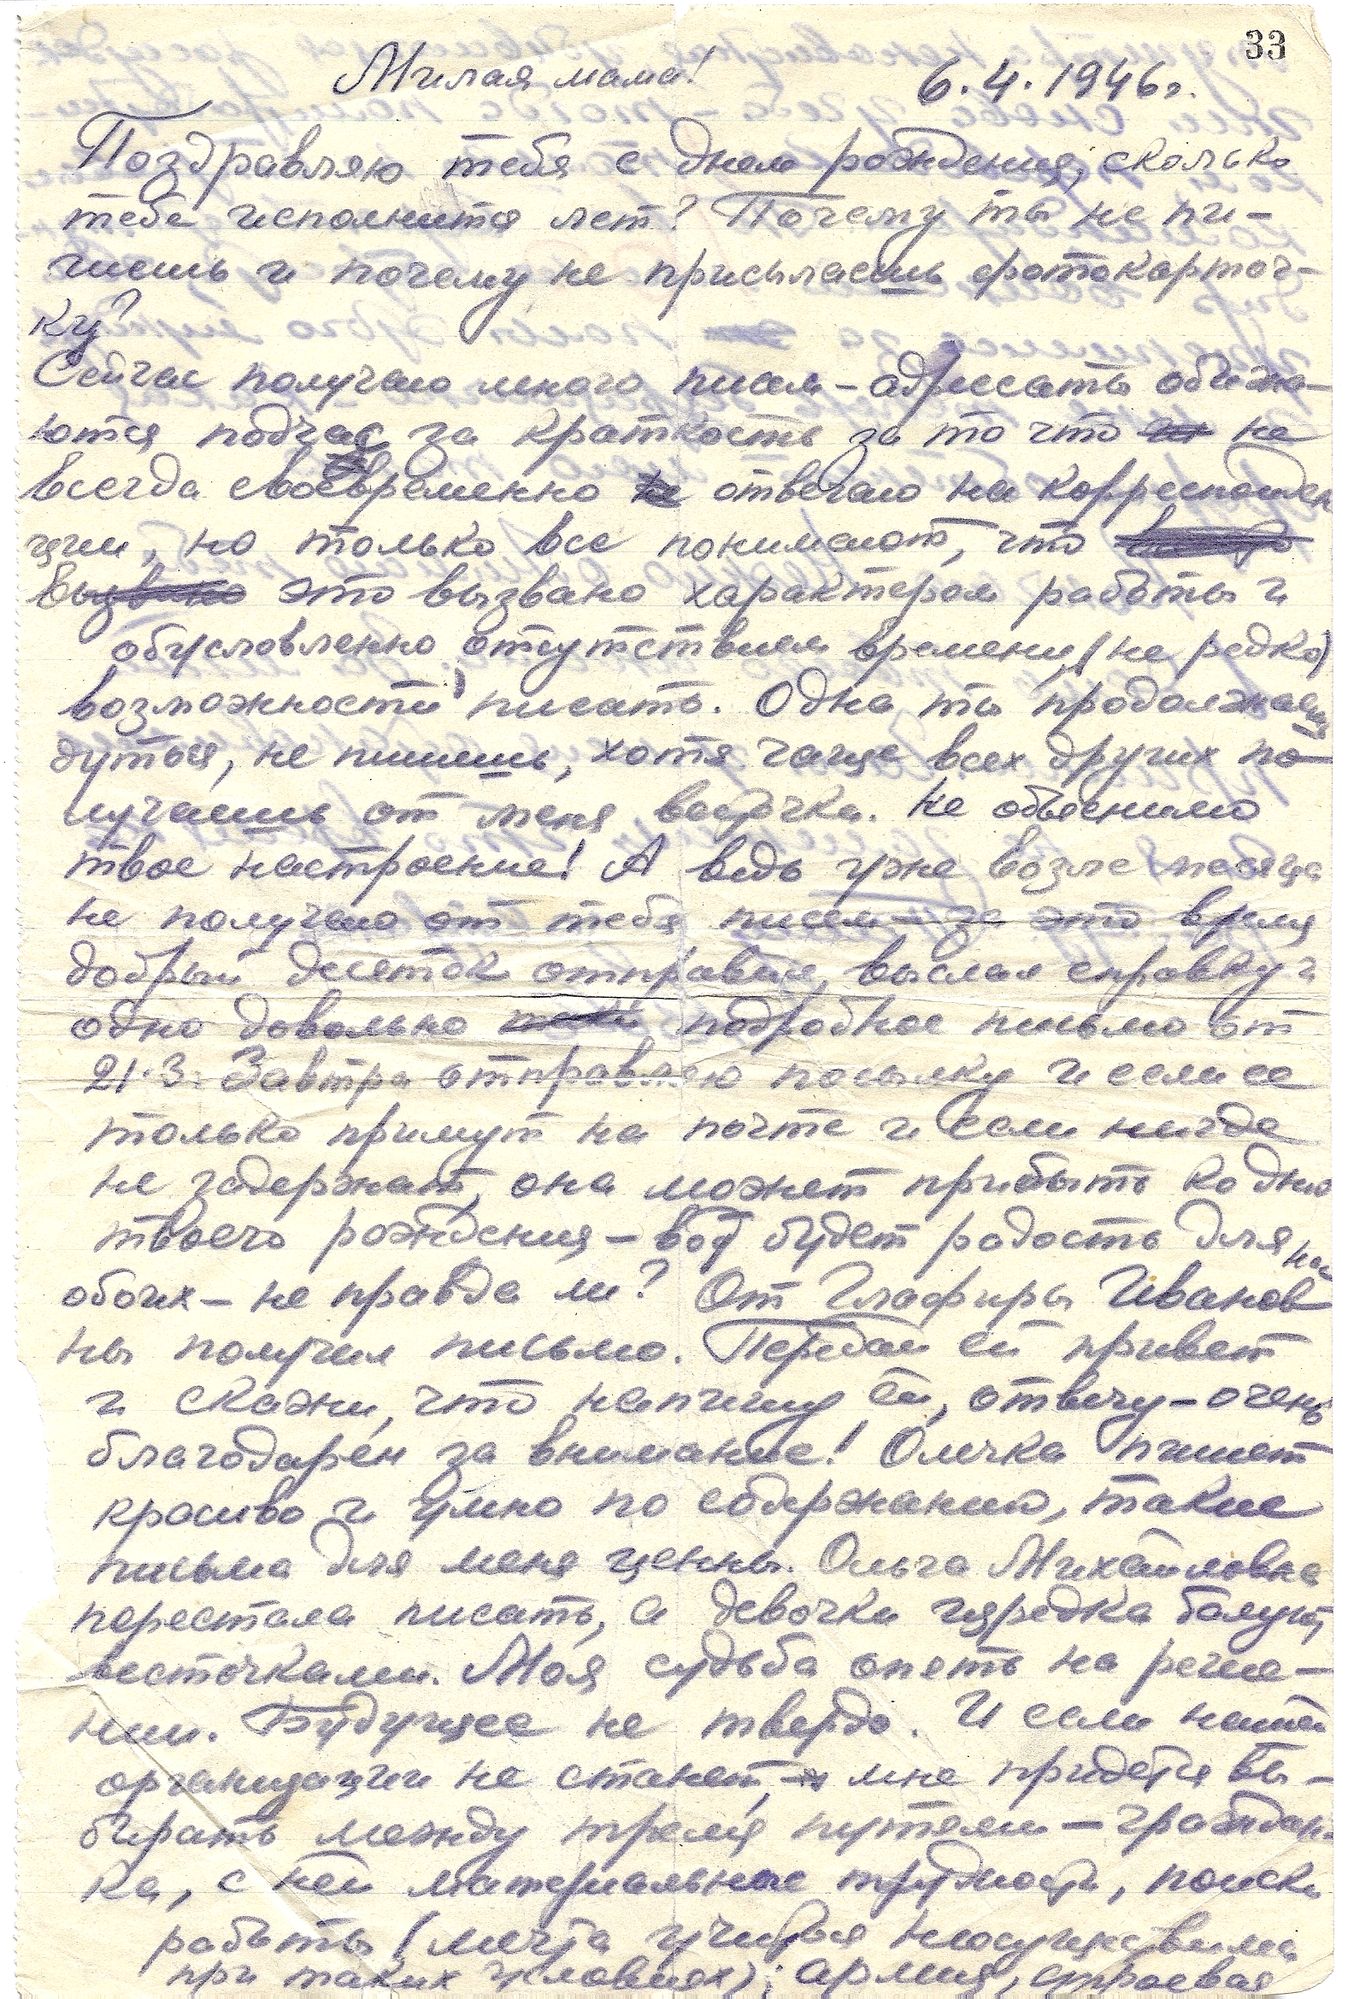 33
Милая мама!
6.4.1946г.
Поздравляю тебя с днем рождения, сколько
тебе исполнится лет? Почему ты не пи-
шешь и почему не присылаешь фотокарточ-
ку?
Сейчас получаю много писем – адресаты обижа-
ются подчас за краткость за то что не
всегда своевременно отвечаю на корреспонден
ции, но только все понимают, что
это вызвано характером работы и
обусловленно отсутствием времени, (не редко)
возможности писать. Одна ты продолжаешь
дуться, не пишешь, хотя чаще всех других по-
лучаешь от меня весточки. Не объяснимо
твое настроение! А ведь уже возле месяца
не получаю от тебя писем – за это время
добрый десяток отправил, выслал справку и
одно довольно подробное письмо от
21.3. Завтра отправляю посылку и если ее
только примут на почте и если нигде
не задержат, она может прибыть ко дню
твоего рождения – вот будет радость для нас
обоих – не правда ли? От Глафиры Иванов
ны получил письмо. Передай ей привет
и скажи, что напишу ей, отвечу – очень
благодарен за внимание! Олечка пишет
красиво и умно по содержанию, такие
письма для меня ценны. Ольга Михайловна
перестала писать, а девочки изредка балуют
весточками. Моя судьба опять на реше-
нии. Будущее не твердо. И если нашей
организации не станет, мне придется вы-
бирать между тремя путями – граждан-
ка, с ней материальные трудности, поиски
работы (мечта учиться неосуществима
при таких условиях); армия, строевая